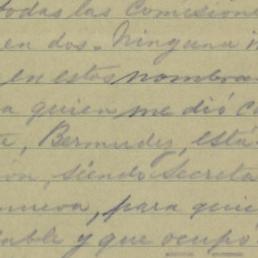 todas las Comisione
en dos. Ninguna i
en estos nombra
a quien me dió c
a, Bermudez, está
ón, siendo Secreta
nueva, para quie
able y que ocupó